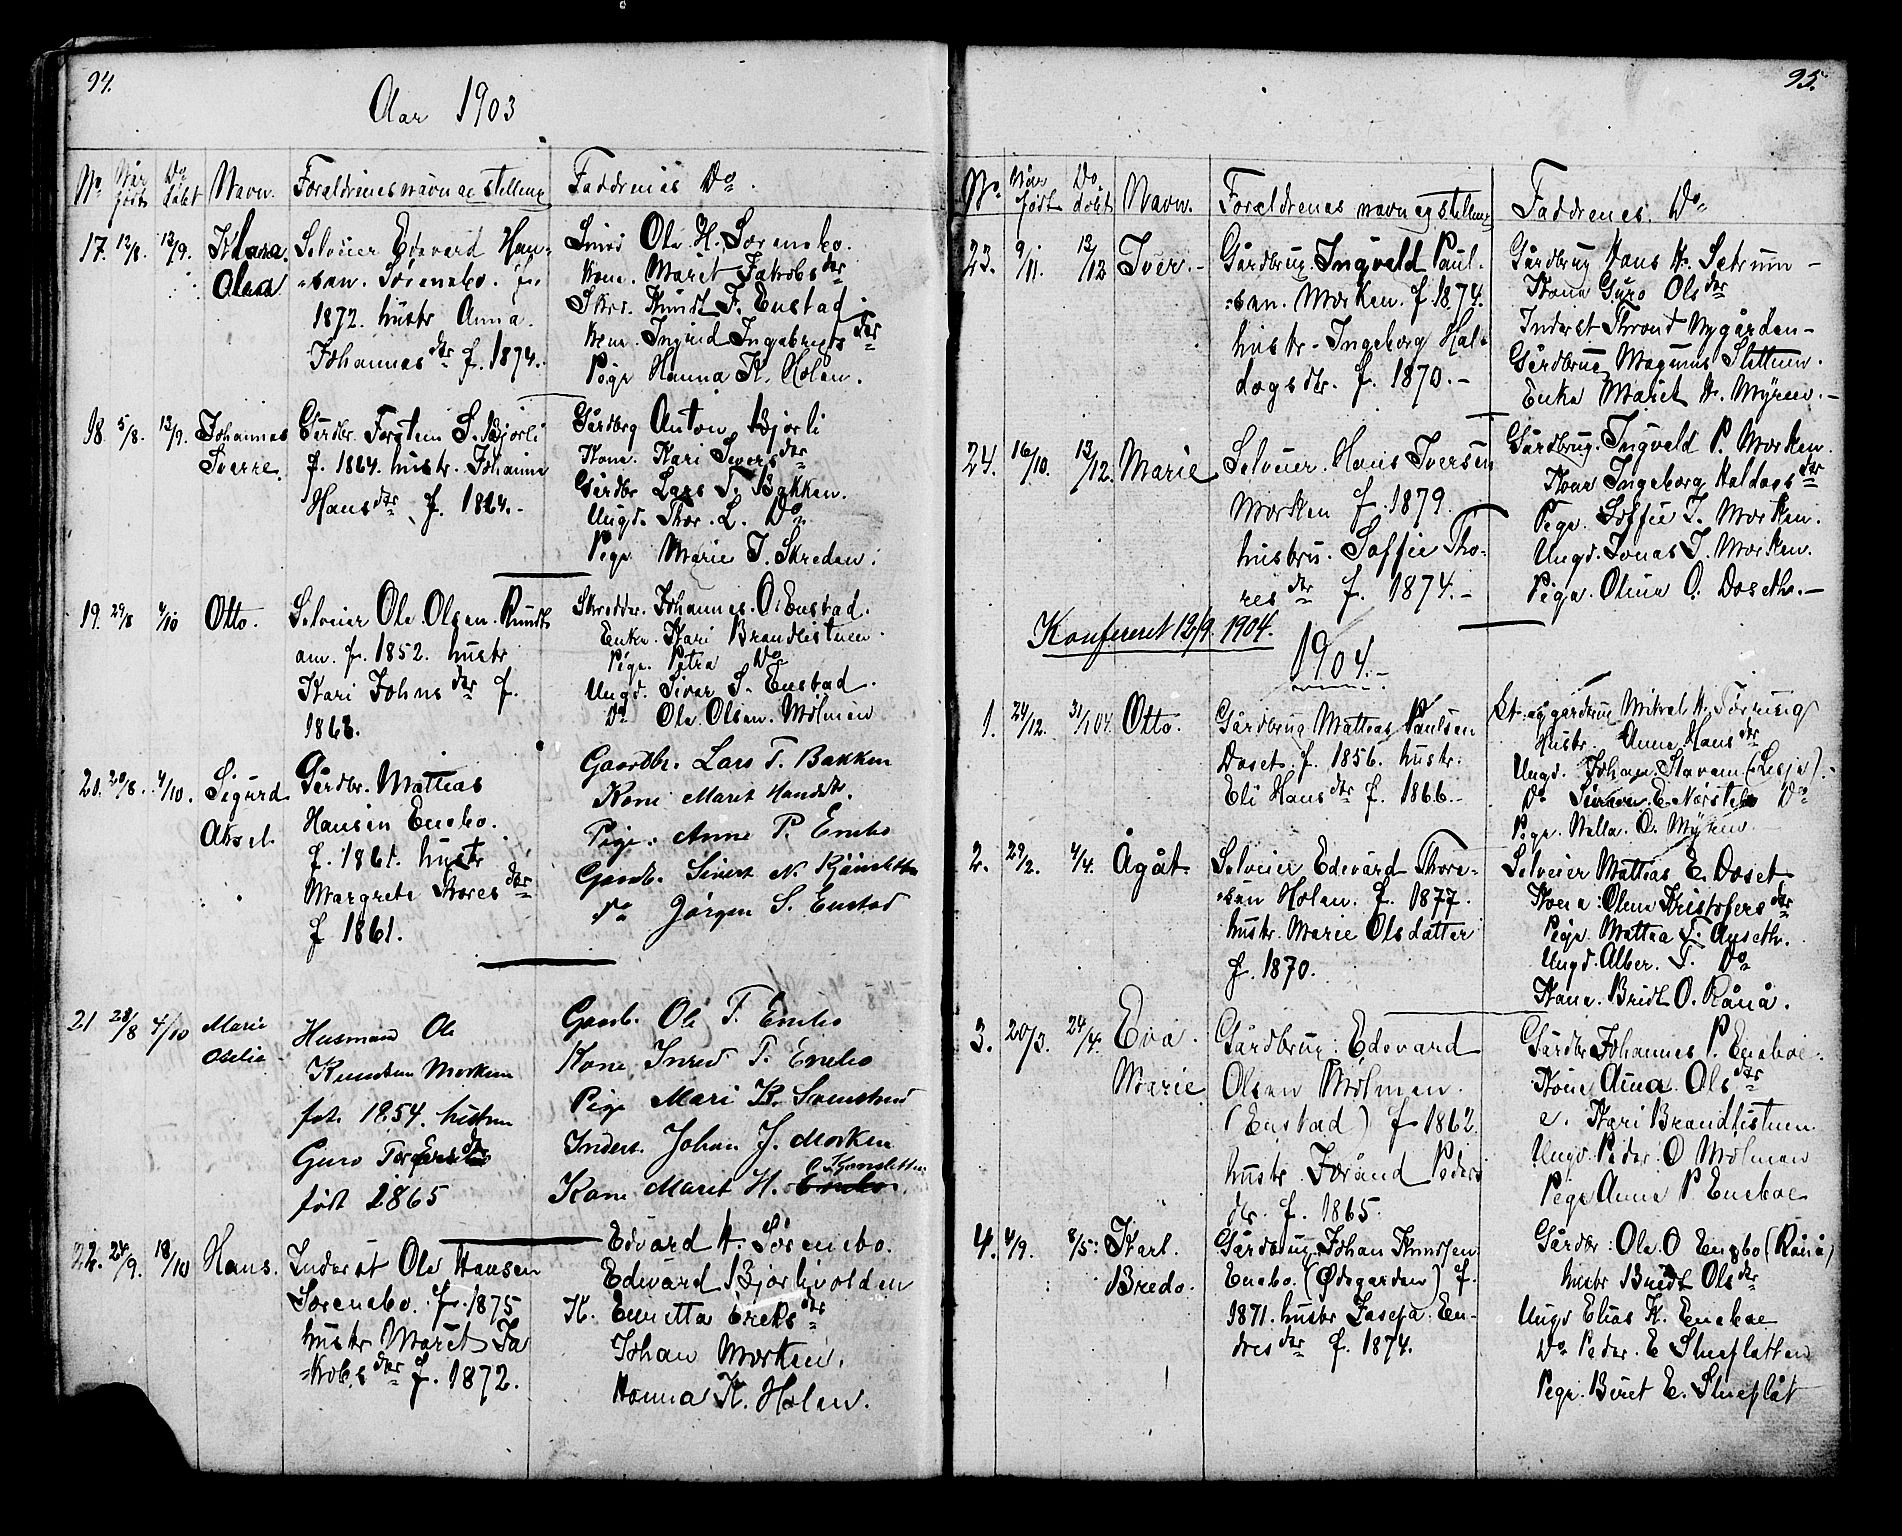 94.
Aar 1903
No. Når født Do døbt Navn. Foreldrenes navn og stilling Faddrenes Do.
17. 12/8. 13/9. Klara. Olea
Selveier Edevard Han-
san. Sørenebo. f.
1872. hustr Anna.
Johannesdtr f. 1874.
Smed Ole H. Sørenebo.
Kone. Marit Jakobsdtr
Knudt J. Enstad.
Kone. Ingrid Ingebrigtsdtr
Pige Hanna K. Holen.
18. 5/8. 13/9. Johannes Sverre.
Gårdbr. Torsten S. Bjorli
f. 1864. hustr. Johanna
Hansdtr f. 1864.-
Gårdbrg Anton Bjorli
Kone. Kari Siversdtr
Gårdbr Lars T. Bakken.
Ungd. Thor. L. Do
Pige Marie J. Skreden.
19. 29/8 4/10 Otto.
Selveier Ole Olsen.
f. 1852. hustr
Kari Johnsdtr f.
1863.
Skredder. Johannes. O. Enstad.
Enke. Kari Brandlistuen.
Pige. Petra Do
Ungd. Siver S. Enstad.
Do Ole Olsen. Mølmen
20. 20/8. 4/10. Sigurd Aksel.
Gårdbr. Mattias
Hansen Enebo.
f. 1861. hustr
Margrete Thoresdtr
f 1861.
Gaardbr. Lars T. Bakken
Kone Marit Hansdtr.
Pige. Anne P. Enebo
Gaardb. Sivert N. Kjønsletten
do Jørgen S. Enstad
21 28/8 4/10 Marie Oselie
Husmand Ole
Knudsen Morken
født 1854. hustru
Guro
født 1865
Gaardb. Ole T. Enebo
Kone T. Enebo
Pige Mari K.
Inderst. Johan J. Morken
Kone Marit H. Enebo Kjønsletten
22. 24/9. 18/10 Hans.
Inderst Ole Hansen
Sørenebo. f. 1875
hustr Marit Ja
=kobsdtr f. 1872.
Edvard H. Sørenebo.
Edevard Bjorlivolden
K. Enretta Eriksdtr
Johan Morken.
Hanna K. Holen.
95.
No. Når født Do døbt Navn. Foreldrenes navn og stilling Faddrenes. Do
23. 9/11. 13/12 Iver.-
Gårdbrug. Ingvald Paul-
san. Morken. f 1874.
hustr. Ingeborg Hal-
dogsdtr. f. 1870.-
Gårdbrug Hans H. Setrum -
Kone Guro Olsdtr
Inderst Thrond Nygården -
Gårdbrug Magnus Slettum.
Enke Marit H. Myren.-
24. 16/10. 13/12. Marie
Selveier. Hans Iversen
Morken f. 1879.
husbru. Soffie Tho-
resdtr f. 1874.-
Gårdbrug. Ingvald P. Morken.
Kone Ingeborg Haldogsdtr
Pige. Soffie I. Morken.
Ungd. Jonas I. Morken.
Pige. Oline O. Doseth.-
Konfereret 12/9. 1904.
1904.-
1. 24/12. 31/1 04. Otto.
Gårdbrug Mattias Paulsen
Doset. f. 1856. hustr.
Eli Hansdtr f. 1866.-
og gårdbrug Mikal H.
Hustr. Anne Hansdtr
Ungd. Johan. Stavem (Lesje).
Do Simon E. Norstebo Do
Pige. Nella. O. Myren.
2. 29/2. 4/4. Ågåt.
Selveier Edevard Thore-
san Holen. f. 1877.
hustr. Marie Olsdatter
f. 1870.
Selveier Mattias E. Doset
Kone: Olina Kristofersdtr
Pige. Mattea T. Anseth.
Ungd. Alber. T. Do
Kone. Bridt O. Rånå.
3. 20/3. 24/4. Eva. Marie
Gårdbrug: Edevard
Olsen Mølmen.
(Enstad) f 1862.
hustr. Jorånd Peders
dtr. f. 1865.
Gårdbr Johannes P. Eneboe.
Kone Anna. Olsdtr
e. Kari Brandlistuen.
Ungd. Peder. O Mølmen
Pige Anna P. Eneboe
4. 4/9. 8/5: Karl. Bredo.
Gårdbrug. Johan Knudsen
Enebo. (Ødegarden) f.
1871. hustr Josefa. En-
dresdtr f. 1874.
Gårdbr: Ole. O Enebo (Rånå)
hustr Bridt Olsdtr
Ungd Elias K. Eneboe
Do Peder. E Stueflatten
Pige. Beret E. Stueflåt